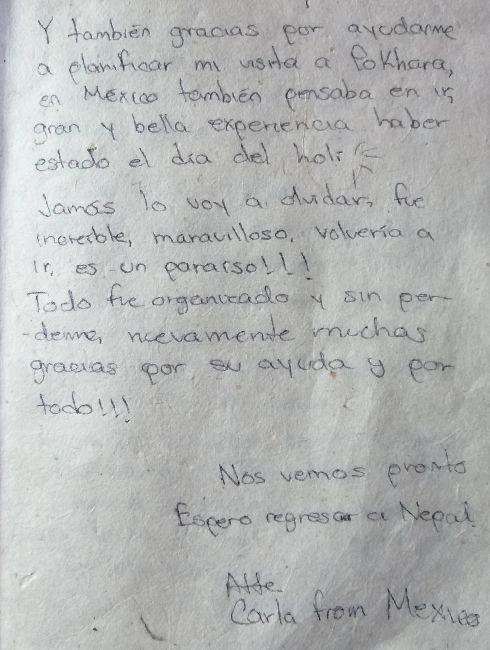 Y también gracias por ayudarme
a planificar mi visita a Pokhara,
en México también pensaba en ir,
gran y bella experiencia haber
estado el día del holi
Jamás lo voy a olvidar, fue
increíble, maravilloso, volvería a
ir, es un paraiso!!!
Todo fue organizado y sin per-
-derme, nuevamente muchas
gracias por su ayuda y por
todo!!!
Nos vemos pronto
Espero regresar a Nepal
Atte
Carla from Mexico